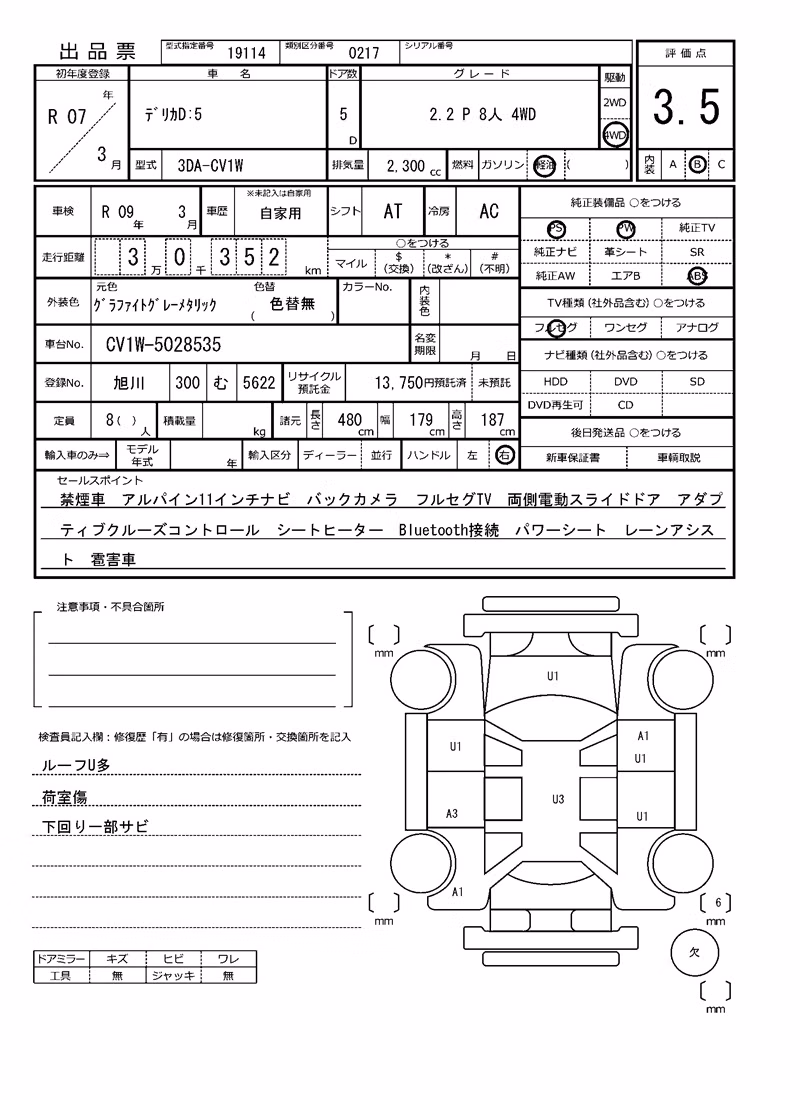 出品票 型式指定番号 19114 類別区分番号 0217 シリアル番号
評価点
3.5
内装 A B C
初年度登録 車名 ドア数 グレード 駆動
R 07 年 3 月 デリカD:5 5 D 2.2 P 8人 4WD 2WD 4WD
型式 3DA-CV1W 排気量 2,300 cc 燃料 ガソリン 軽油 ( )
車検 R 09 年 3 月 車歴 ※未記入は自家用 自家用 シフト AT 冷房 AC
走行距離 3 万 0 千 3 5 2 km ○をつける マイル $ (交換) * (改ざん) # (不明)
外装色 元色 グラファイトグレーメタリック 色替 ( 色替無 ) カラーNo. 内装色
車台No. CV1W-5028535 名変期限 月 日
登録No. 旭川 300 む 5622 リサイクル預託金 13,750円預託済 未預託
定員 8( ) 人 積載量 kg 諸元 長さ 480 cm 幅 179 cm 高さ 187 cm
輸入車のみ⇒ モデル年式 年 輸入区分 ディーラー 並行 ハンドル 左 右
純正装備品 ○をつける
PS PW 純正TV
純正ナビ 革シート SR
純正AW エアB ABS
TV種類(社外品含む)○をつける
フルセグ ワンセグ アナログ
ナビ種類(社外品含む)○をつける
HDD DVD SD
DVD再生可 CD
後日発送品 ○をつける
新車保証書 車輌取説
セールスポイント
禁煙車 アルパイン11インチナビ バックカメラ フルセグTV 両側電動スライドドア アダプ
ティブクルーズコントロール シートヒーター Bluetooth接続 パワーシート レーンアシス
ト 雹害車
注意事項・不具合箇所
検査員記入欄：修復歴「有」の場合は修復箇所・交換箇所を記入
ルーフU多
荷室傷
下回り一部サビ
ドアミラー キズ ヒビ ワレ
工具 無 ジャッキ 無
mm mm
U1
U1 A1
U1
A3 U3 U1
A1
mm 6 mm
欠
mm